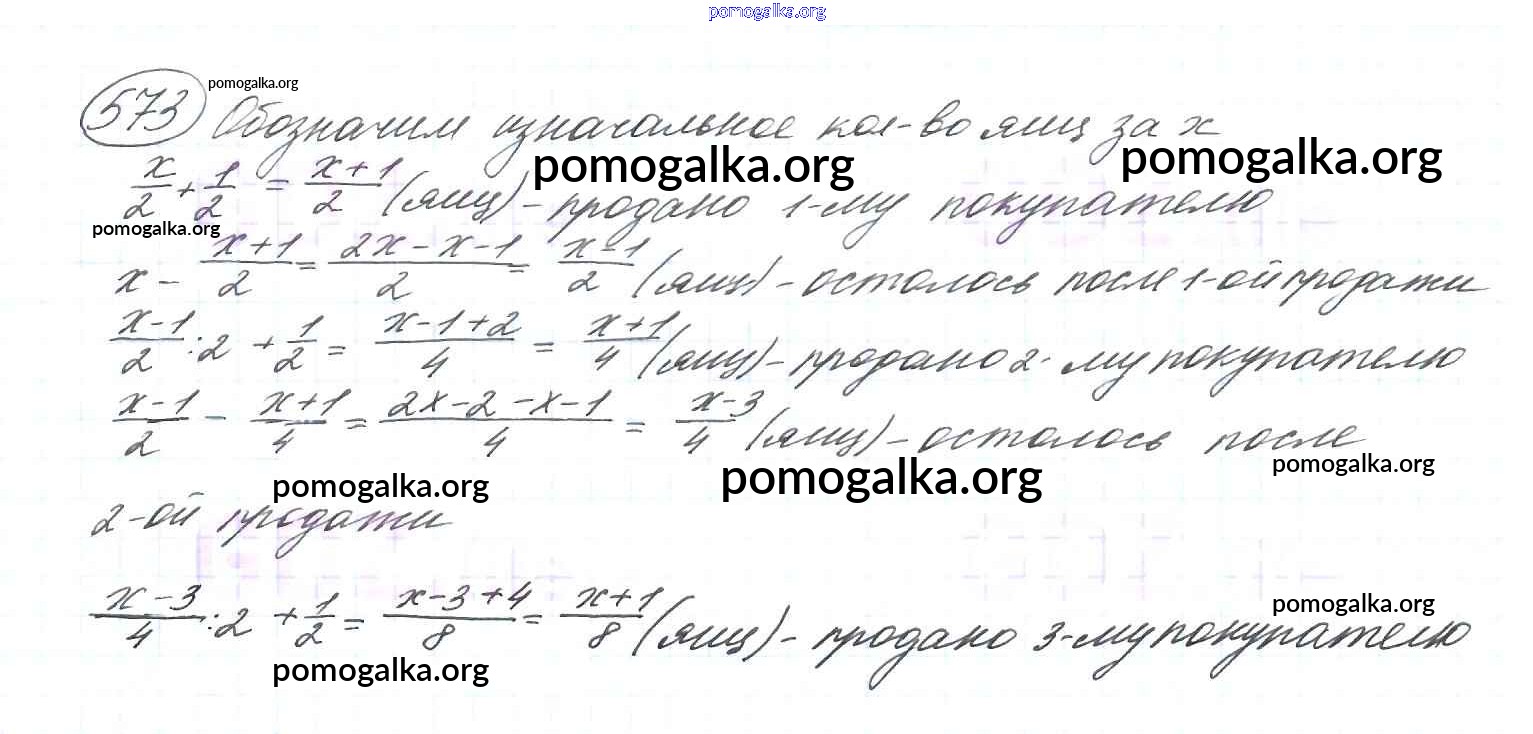 pomogalka.org
573 pomogalka.org
Обозначим изначальное кол-во яиц за x
pomogalka.org pomogalka.org
x/2 + 1/2 = (x+1)/2 (яиц) - продано 1-му покупателю
pomogalka.org
x - (x+1)/2 = (2x-x-1)/2 = (x-1)/2 (яиц) - осталось после 1-ой продажи
(x-1)/2 :2 + 1/2 = (x-1+2)/4 = (x+1)/4 (яиц) - продано 2-му покупателю
(x-1)/2 - (x+1)/4 = (2x-2-x-1)/4 = (x-3)/4 (яиц) - осталось после
pomogalka.org pomogalka.org pomogalka.org
2-ой продажи
(x-3)/4 :2 + 1/2 = (x-3+4)/8 = (x+1)/8 (яиц) - продано 3-му покупателю
pomogalka.org
pomogalka.org